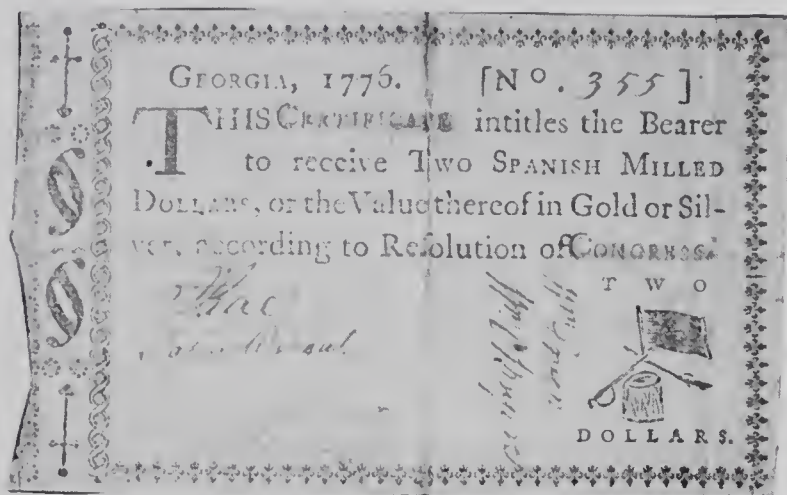 GEORGIA, 1776. [No. 355]
THIS CERTIFICATE intitles the Bearer
to receive Two SPANISH MILLED
DOLLARS, or the Value thereof in Gold or Sil-
ver, according to Reſolution of CONGRESS.
TWO
DOLLARS.